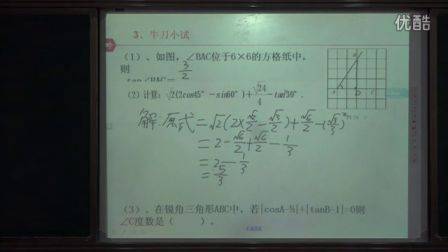 优酷
3、牛刀小试
(1)、如图，∠BAC位于6×6的方格纸中，
则
tan∠BAC= 3/2
(2) 计算：√2(2cos45°−sin60°)+√24/4−tan²30°.
解：原式=√2(2×√2/2−√3/2)+√6/2−(√3/3)²
=2−√6/2+√6/2−1/3
=2−1/3
=5/3
(3)、在锐角三角形ABC中，若|cosA−½|+|tanB−1|=0则
∠C度数是（　　）。